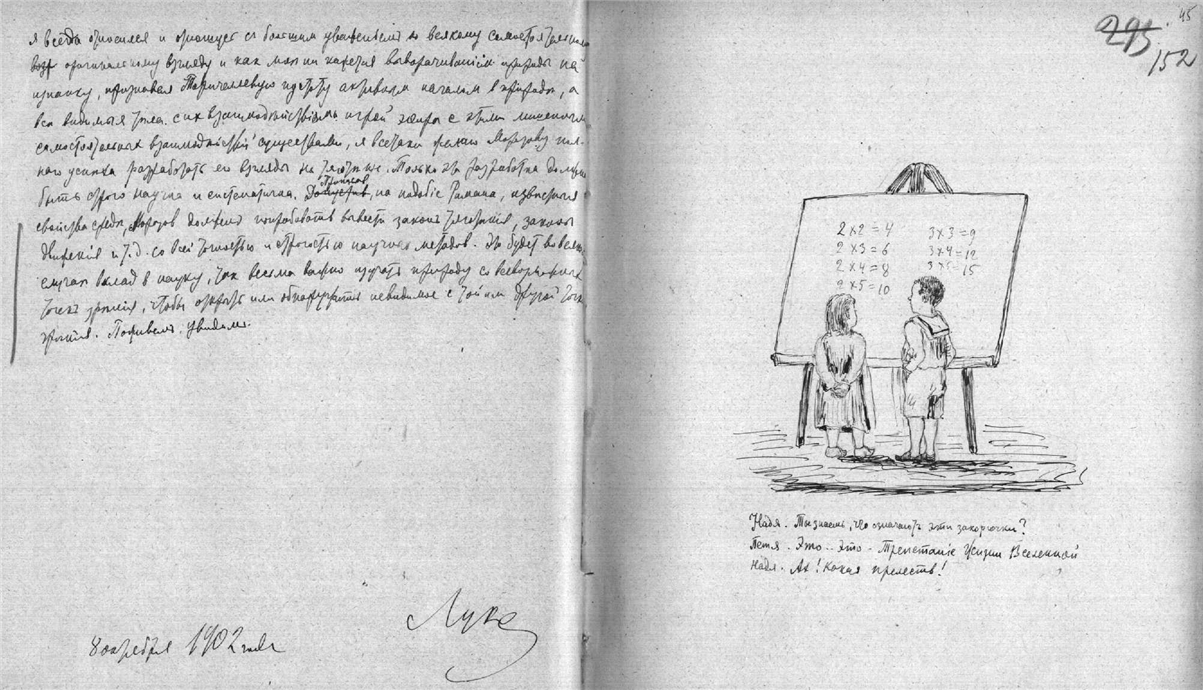 я всегда относился и отношусь с большим уважением ко всякому самостоятельному
оригинальному взгляду и как мы ни
изнанку, признавая Торичеллевую пустоту активным началом в природе, а
все видимыя тела с их взаимодействием игрой
самостоятельных взаимодействий существами, я всетаки желаю Морозову пол-
наго успеха разработать его взгляды на тяготение. Только эта разработка должна
быть строго научна и систематична. на подобіе Римана, известныя
свойства среды, Морозов должен попробовать вывести закон тяготенія, законы
движенія и т.д. со всей точностью и строгостью научных методов. Это будет во всяком
случае вклад в науку, так весьма важно изучать природу со всевозможных
точек зренія, чтобы открыть или обнаружить невидимое с той или другой точки
зренія. Поживем. увидим.
8 октября 1902 года
Лука
45
295
152
2×2=4
2×3=6
2×4=8
2×5=10
3×3=9
3×4=12
3×5=15
Надя. Ты знаешь, что означают эти закорючки?
Петя. Это.. Это. Трепетаніе Жизни Вселенной
Надя. Ах! Какая прелесть!